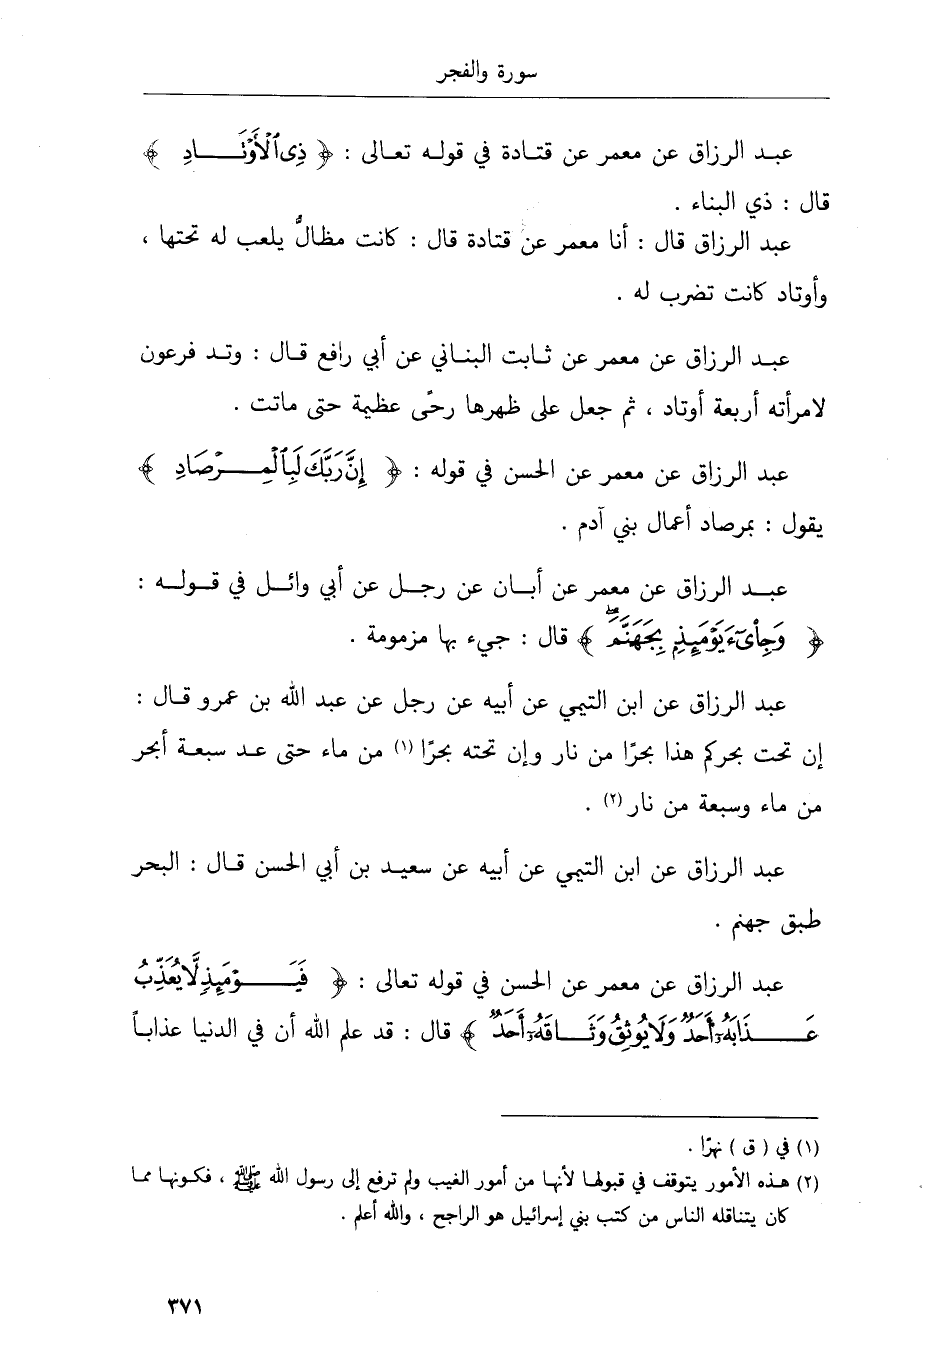 سورة والفجر
عبد الرزاق عن معمر عن قتادة في قوله تعالى : ﴿ ذِى ٱلْأَوْتَادِ ﴾
قال : ذي البناء .
عبد الرزاق قال : أنا معمر عن قتادة قال : كانت مظالُّ يلعب له تحتها ،
وأوتاد كانت تضرب له .
عبد الرزاق عن معمر عن ثابت البناني عن أبي رافع قال : وتد فرعون
لامرأته أربعة أوتاد ، ثم جعل على ظهرها رحًى عظيمة حتى ماتت .
عبد الرزاق عن معمر عن الحسن في قوله : ﴿ إِنَّ رَبَّكَ لَبِٱلْمِرْصَادِ ﴾
يقول : بمرصاد أعمال بني آدم .
عبد الرزاق عن معمر عن أبان عن رجل عن أبي وائل في قوله :
﴿ وَجِاْىٓءَ يَوْمَئِذٍۭ بِجَهَنَّمَ ۚ ﴾ قال : جيء بها مزمومة .
عبد الرزاق عن ابن التيمي عن أبيه عن رجل عن عبد الله بن عمرو قال :
إن تحت بحركم هذا بحرًا من نار وإن تحته بحرًا (١) من ماء حتى عد سبعة أبحر
من ماء وسبعة من نار (٢) .
عبد الرزاق عن ابن التيمي عن أبيه عن سعيد بن أبي الحسن قال : البحر
طبق جهنم .
عبد الرزاق عن معمر عن الحسن في قوله تعالى : ﴿ فَيَوْمَئِذٍ لَّا يُعَذِّبُ
عَذَابَهُۥٓ أَحَدٌ وَلَا يُوثِقُ وَثَاقَهُۥٓ أَحَدٌ ﴾ قال : قد علم الله أن في الدنيا عذاباً
(١) في ( ق ) نهرًا .
(٢) هذه الأمور يتوقف في قبولها لأنها من أمور الغيب ولم ترفع إلى رسول الله ﷺ ، فكونها مما
كان يتناقله الناس من كتب بني إسرائيل هو الراجح ، والله أعلم .
٣٧١